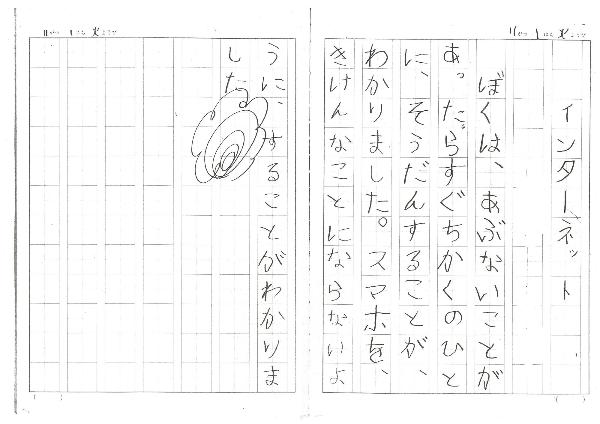 インターネット
ぼくは、あぶないことが
あっ。たらすぐちかくのひと
に、そうだんすることが、
わかりました。スマホを、
きけんなことにならないよ
うに、することがわかりま
した。